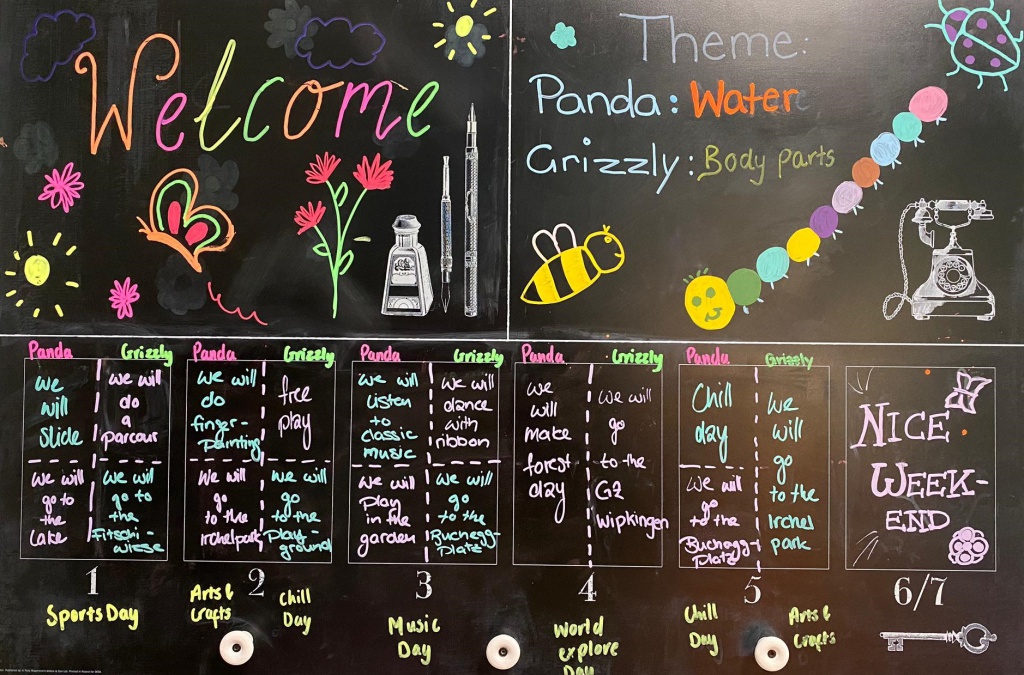 Welcome
Theme:
Panda: Water
Grizzly: Body parts
Panda
Grizzly
we
will
slide
we will
do
a
parcour
we will
go to
the
Lake
we will
go to
the
Fritschi-
wiese
1
Sports Day
Panda
Grizzly
we will
do
finger-
painting
free
play
we will
go
to the
Irchelpark
we will
go
to the
Play-
ground
2
Arts &
Crafts
Chill
Day
Panda
Grizzly
we will
listen
to
classic
music
we will
dance
with
ribbon
we will
play
in the
garden
we will
go
to the
Buchegg-
Platz
3
Music
Day
Panda
Grizzly
we
will
make
forest
day
we will
go
to the
GZ
Wipkingen
4
World
explore
Day
Panda
Grizzly
Chill
day
we will
go
to the
Buchegg-
platz
we
will
go
to the
Irchel
park
5
Chill
Day
Arts &
Crafts
NICE
WEEK-
END
6/7